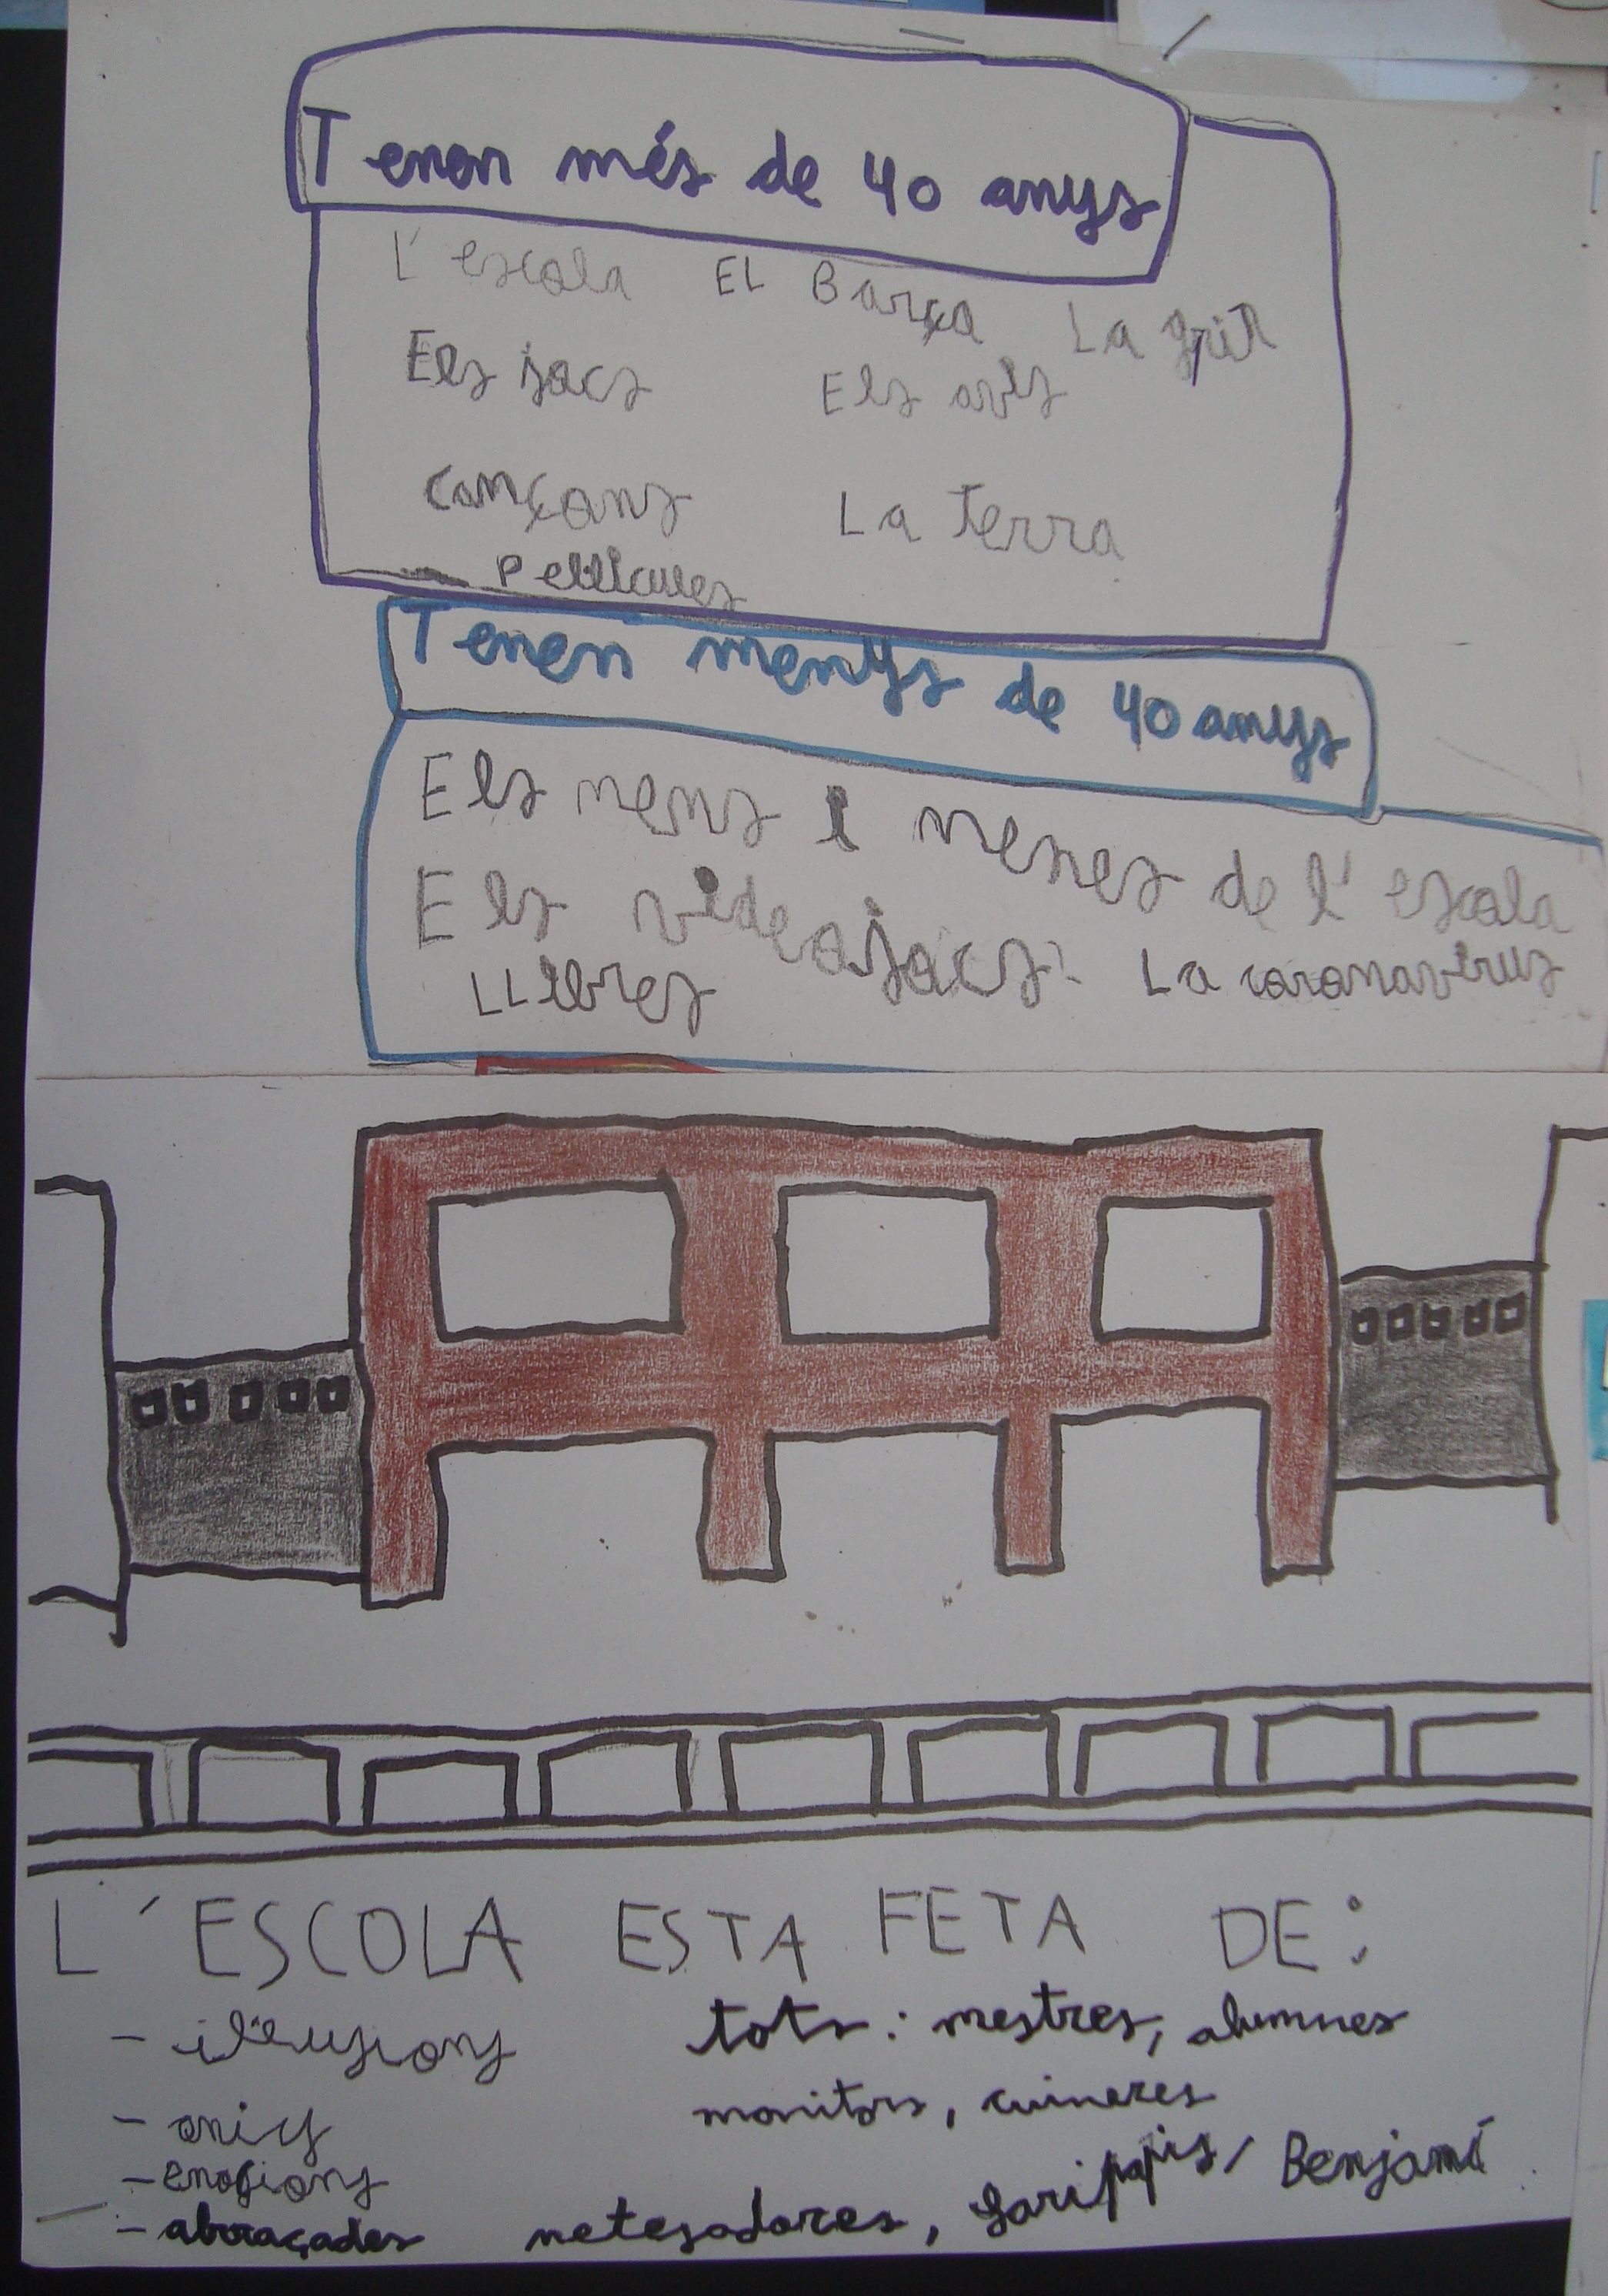 Tenen més de 40 anys
L'escola EL Barça La grip
Els jocs Els avis
Cançons La Terra
Pel·lícules
Tenen menys de 40 anys
Els nens i nenes de l'escola
Els videojocs La coronavirus
LLibres
L'ESCOLA ESTA FETA DE:
- il·lusions tots: mestres, alumnes
- amics monitors, cuineres
- emocions
- abraçades netejadores, Benjamí